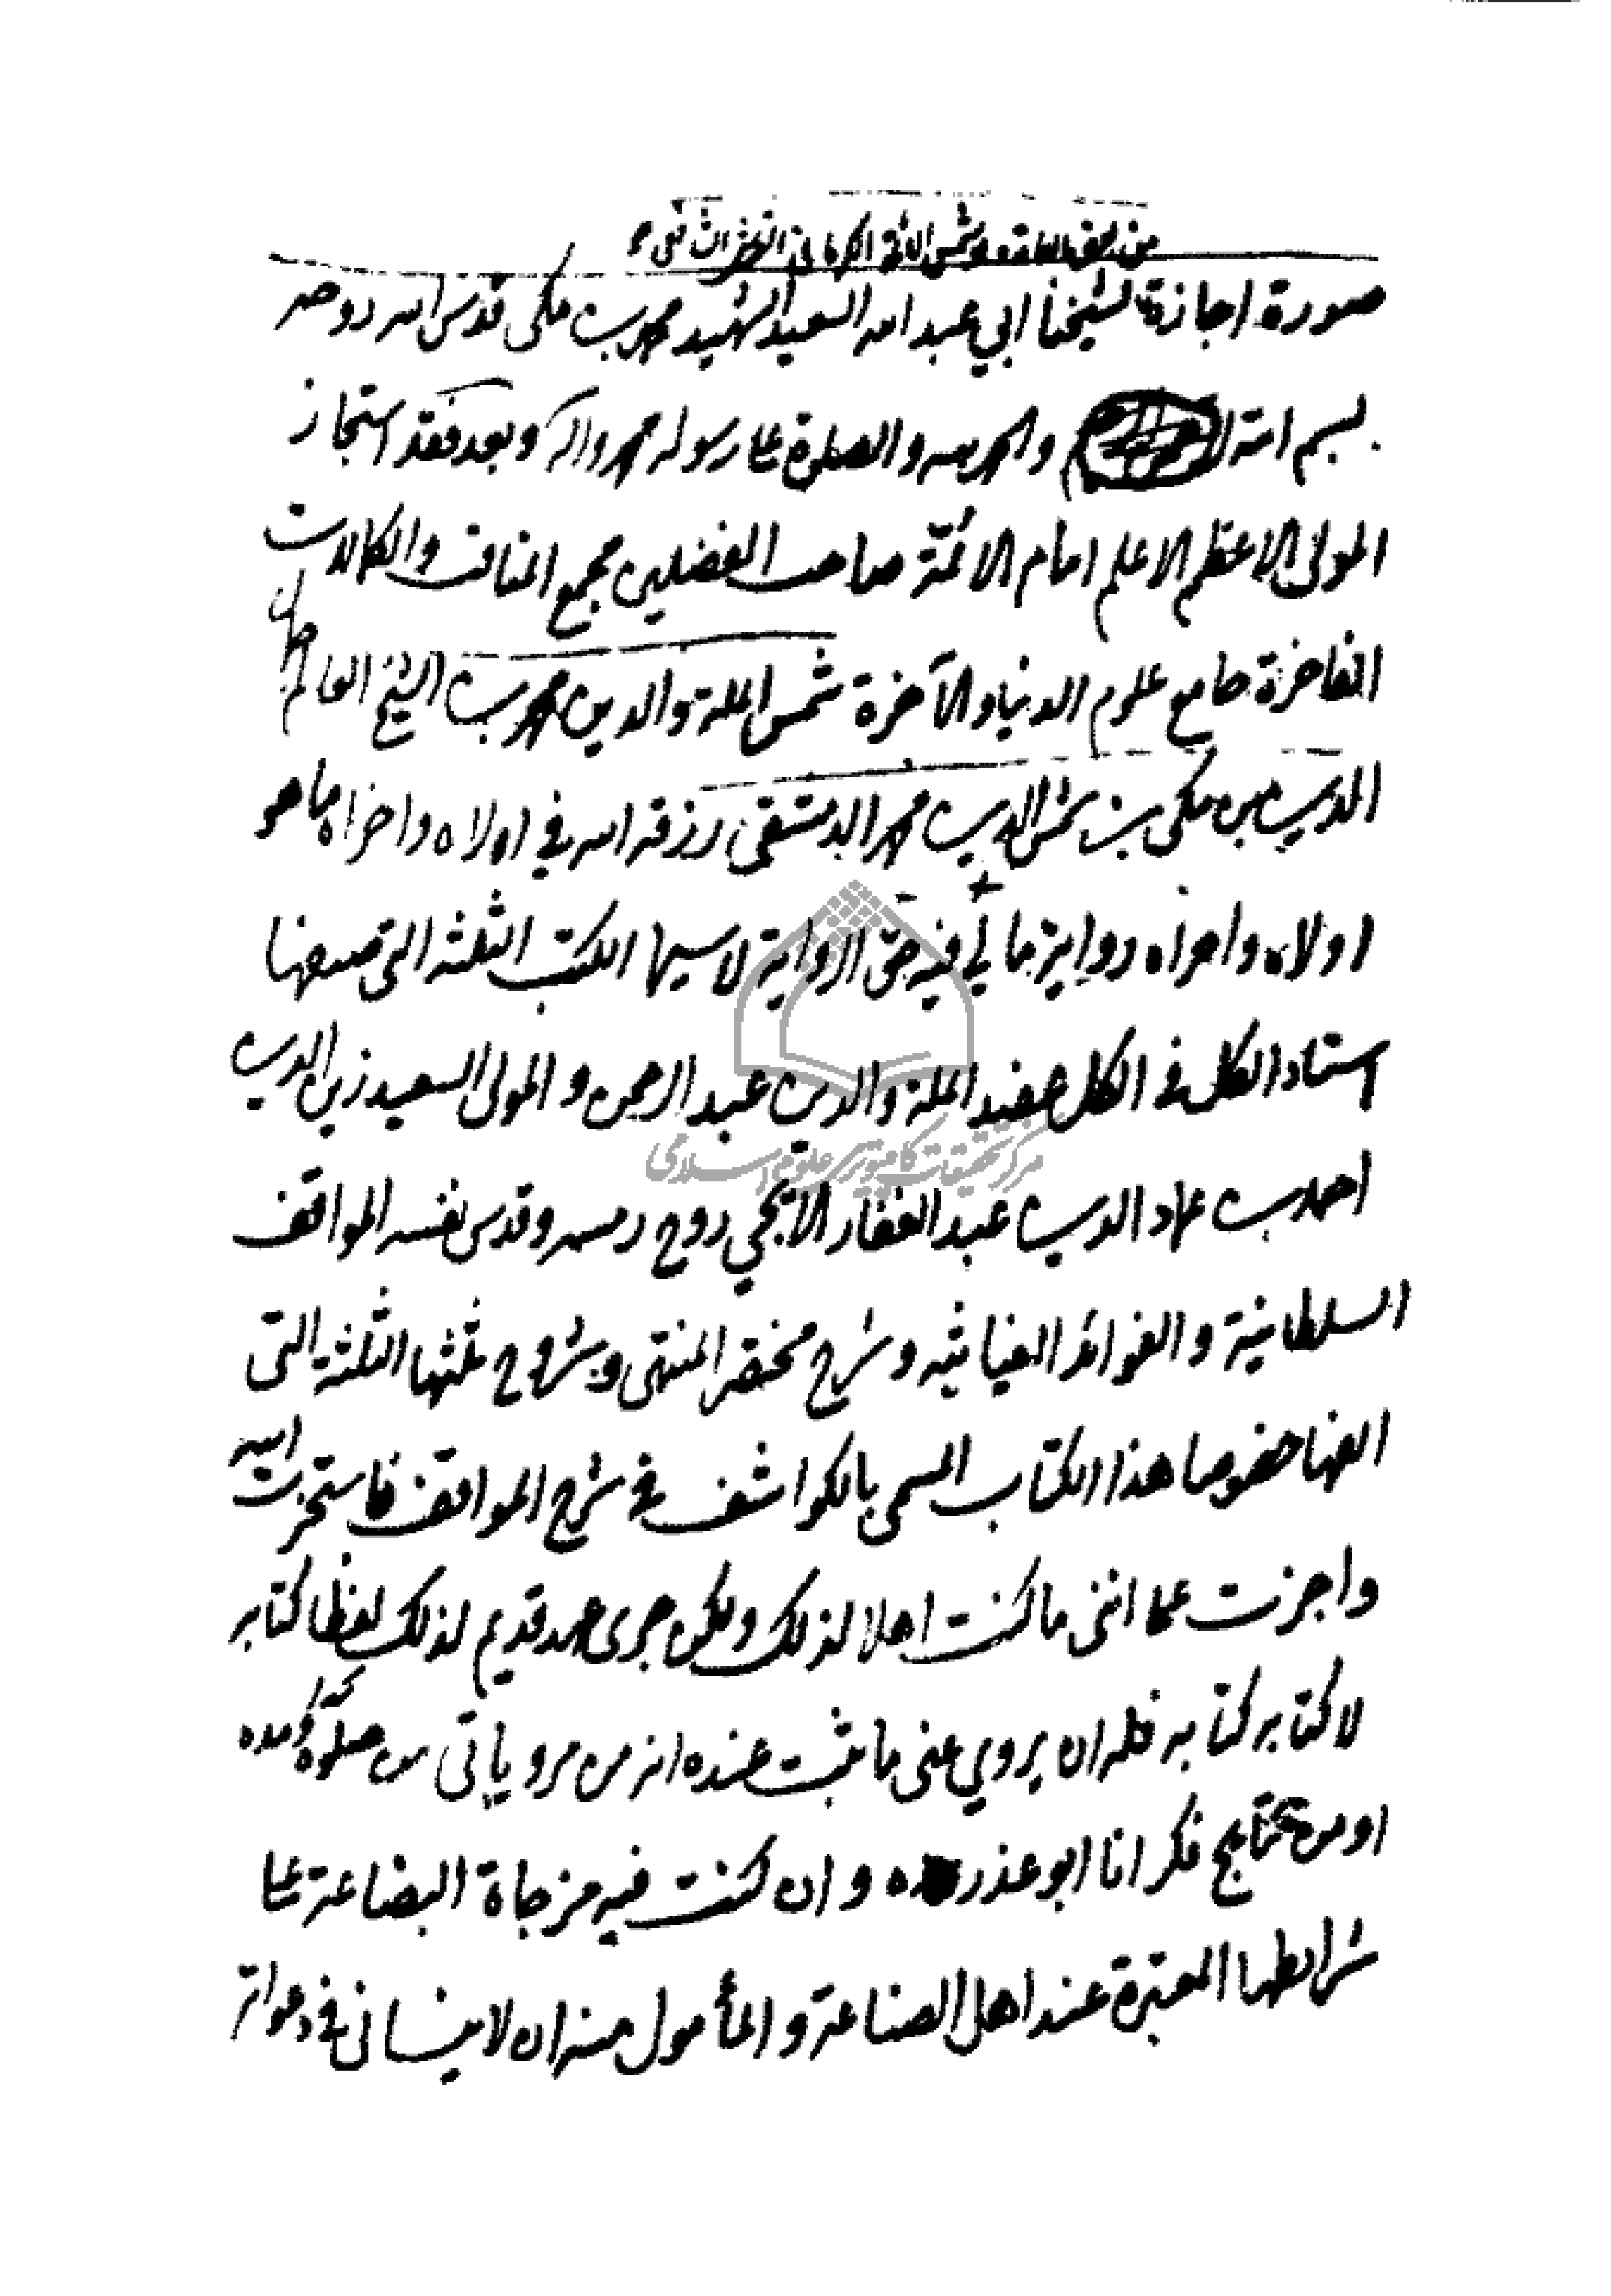 من بعض العامة وهو شمس الأئمة الكرماني القرشي
صورة اجازة لشيخنا ابي عبد الله السعيد الشهيد محمد بن مكي قدس الله روحه
بسم الله والحمد لله والصلوة على رسوله محمد وآله وبعد فقد استجاز
المولى الاعظم الاعلم امام الائمّة صاحب الفضلين مجمع المناقب والكمالات
الفاخرة جامع علوم الدنيا والآخرة شمس الملة والدين محمد بن الشيخ العالم جمال
الدين بن مكي بن شمس الدين محمد الدمشقي رزقه الله في اولاه واخراه ما هو
اولاه واحراه رواية ما لي فيه حق الرواية لا سيما الكتب الثلثة التي صنفها
استاد الكل في الكل عضد الملة والدين عبد الرحمن و المولى السعيد زين الدين
احمد بن عماد الدين عبد الغفار الايجي روح رمسه وقدس نفسه المواقف
السلطانية و الفوائد الغياثيه و شرح مختصر المنتهى وشروح ثلثها الثلثة التي
الفها خصوصا هذا الكتاب المسمى بالكواشف في شرح المواقف فاستخرت الله
واجزت على انني ما كنت اهلا لذلك ولكن جرى عهد قديم لذلك لفظا كتابه
لا كتابه كتابه فله ان يروي عني ما ثبت عنده انه من مروياتي
او من نتايج فكر انا ابو عذره و ان كنت فيه مزجاة البضاعة على
شرايطها المعتبرة عند اهل الصناعة و المأمول منه ان لا ينساني في دعواته
مركز تحقيقات كامپيوتري علوم اسلامي